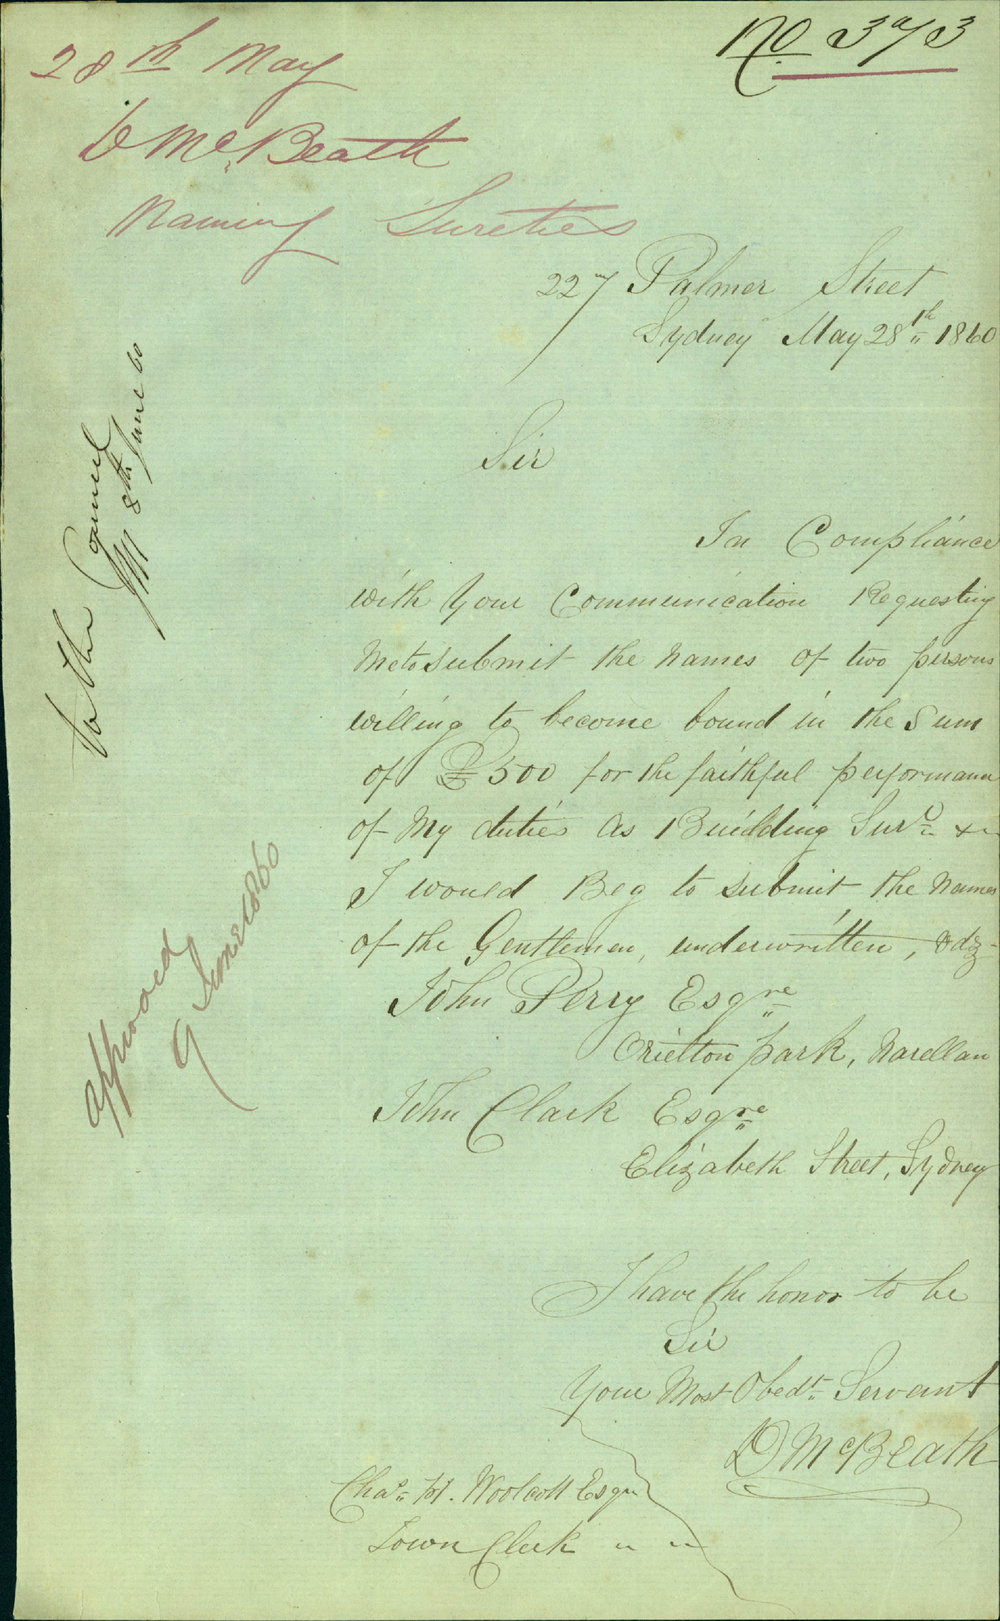 No 373
28th May
D McBeath
Naming Sureties
227 Palmer Street
Sydney May 28th 1860
Sir
In Compliance
with Your Communication Requesting
Me to submit the Names of two persons
willing to become bound in the Sum
of £500 for the faithful performance
of My duties as Building Survr &c
I would Beg to submit the Names
of the Gentlemen, underwritten,
John Perry Esqre
Orielton park, Narellan
John Clark Esqre
Elizabeth Street, Sydney
I have the honor to be
Sir
Your Most Obedt Servant
D McBeath
Chas H. Woolcott Esqre
Town Clerk
To the Council
8th June 60
Approved
9 June 1860